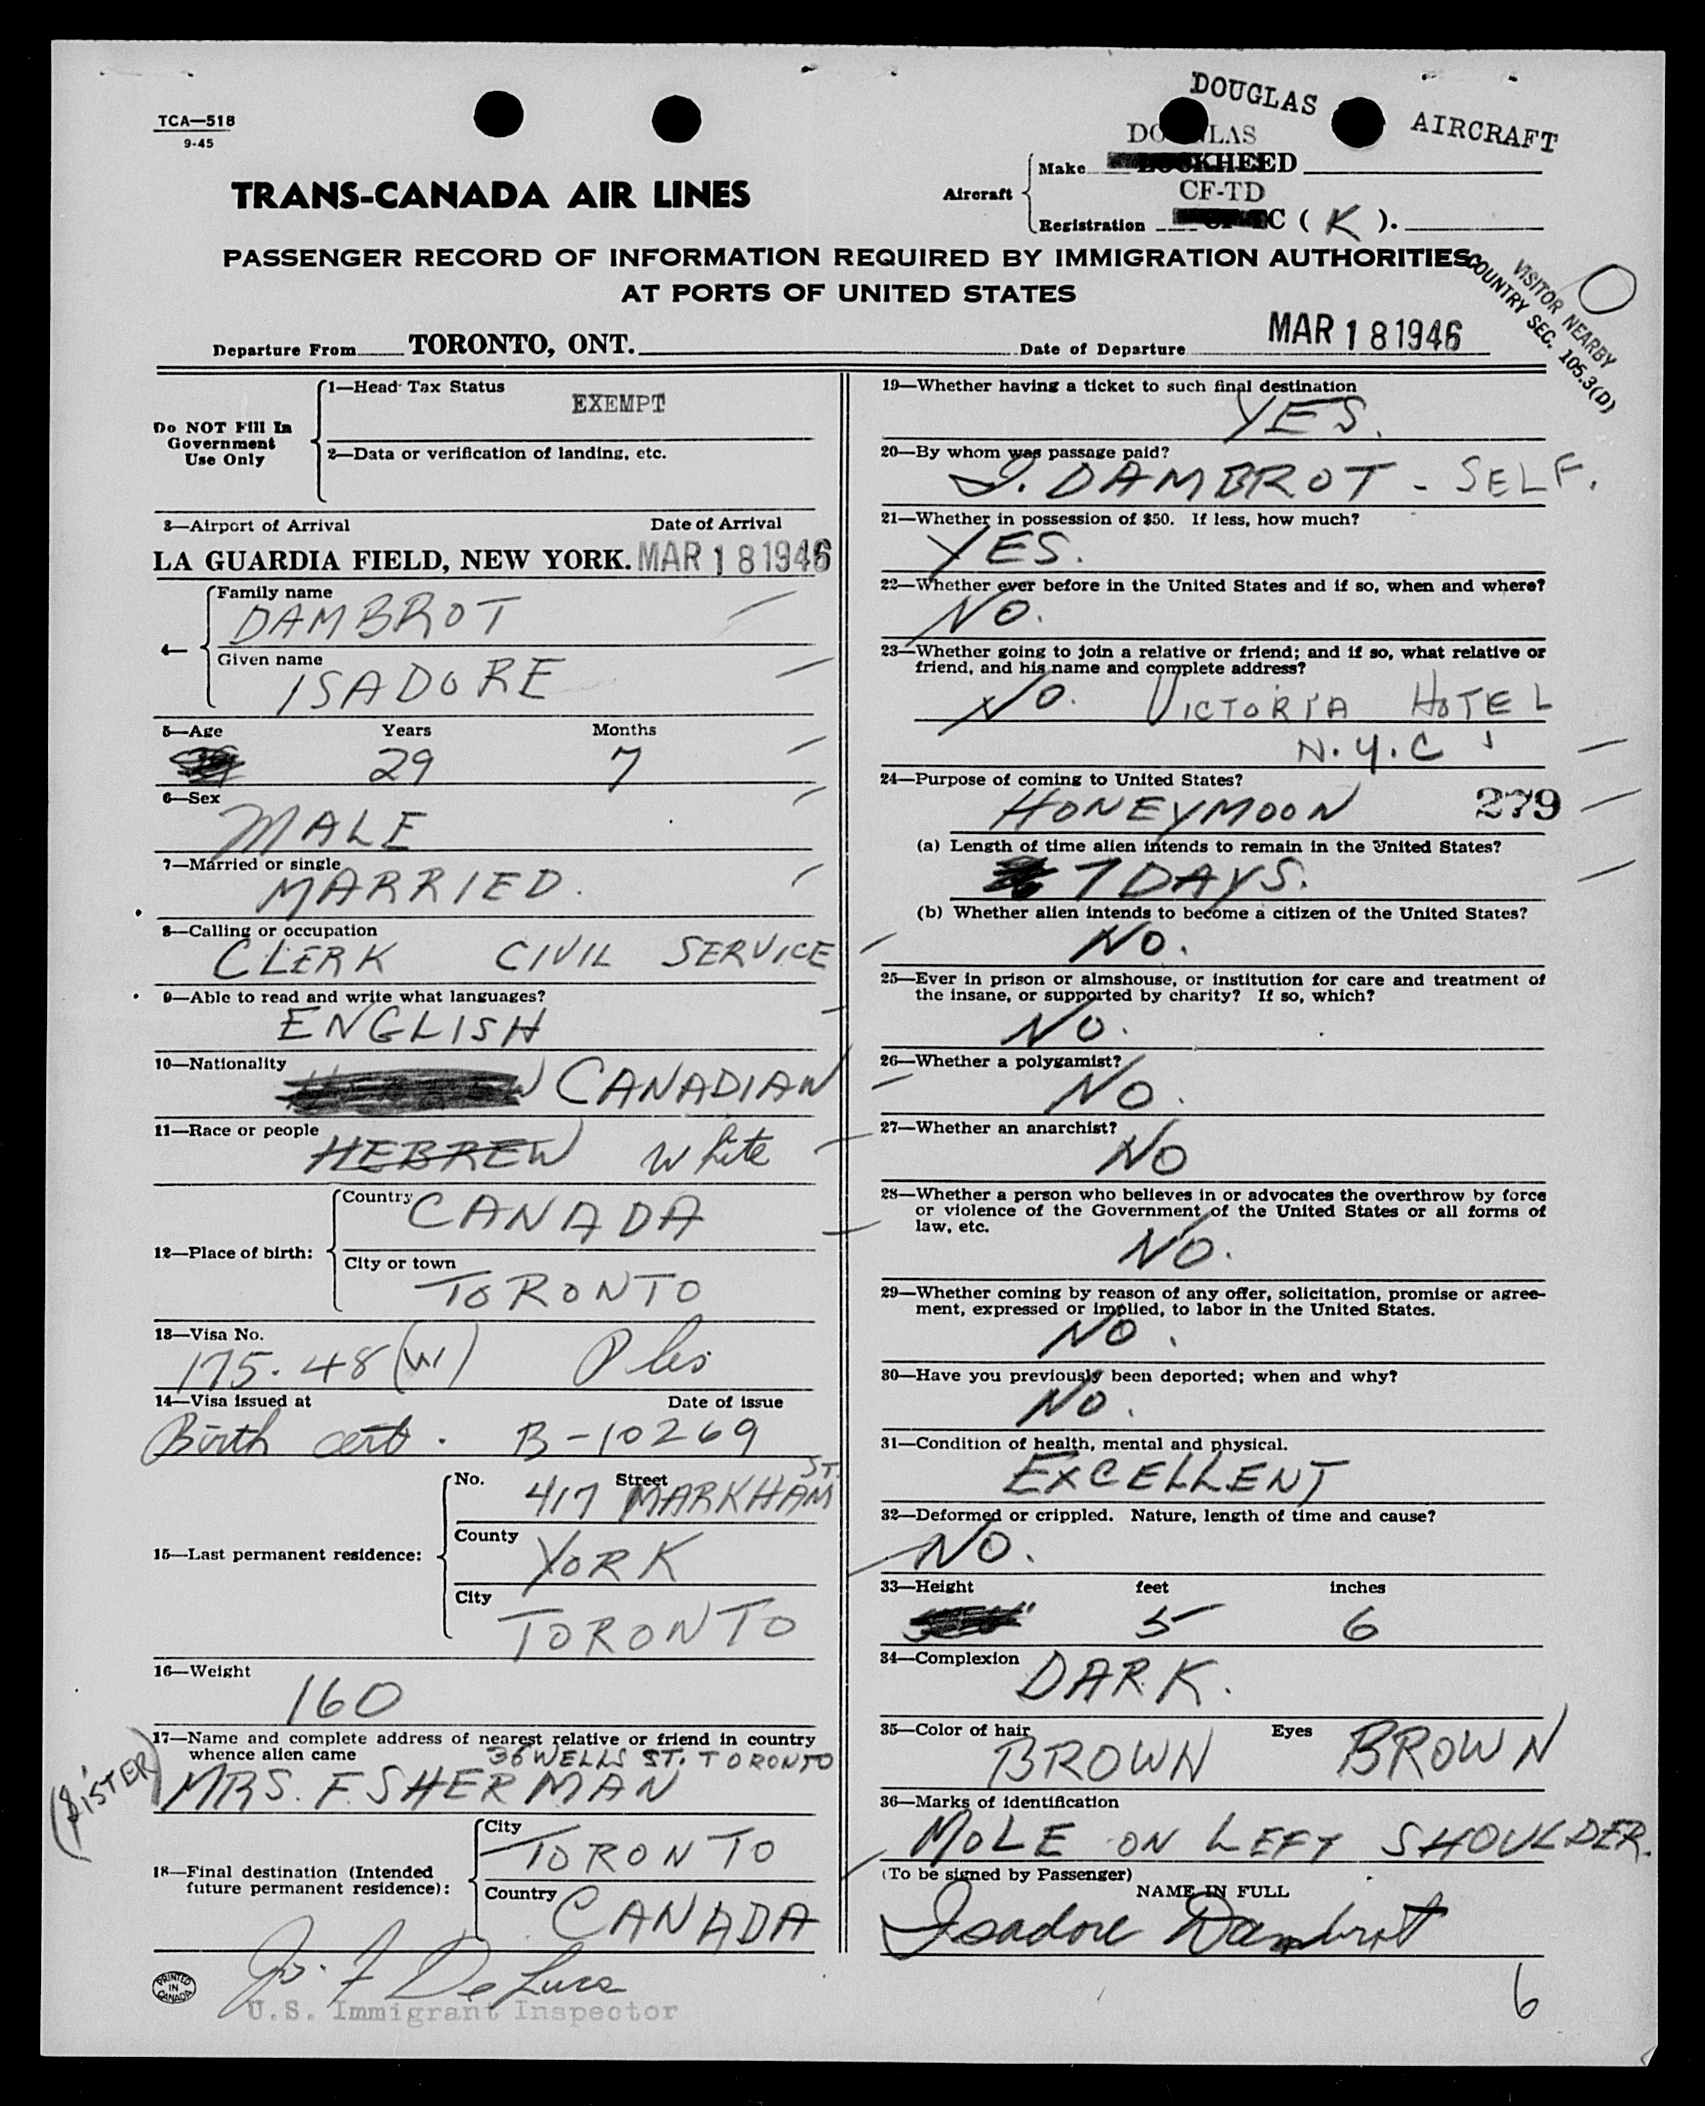 TCA—518
9-45
DOUGLAS AIRCRAFT
DOUGLAS
TRANS-CANADA AIR LINES
Aircraft
Make LOCKHEED
CF-TD
Registration C ( K ).
PASSENGER RECORD OF INFORMATION REQUIRED BY IMMIGRATION AUTHORITIES
AT PORTS OF UNITED STATES
VISITOR NEARBY
COUNTRY SEC. 105.3(D)
Departure From TORONTO, ONT. Date of Departure MAR 18 1946
Do NOT Fill In
Government
Use Only
1—Head Tax Status
EXEMPT
2—Data or verification of landing, etc.
3—Airport of Arrival Date of Arrival
LA GUARDIA FIELD, NEW YORK. MAR 18 1946
4—
Family name
DAMBROT
Given name
ISADORE
5—Age Years Months
29 7
6—Sex
MALE
7—Married or single
MARRIED.
8—Calling or occupation
CLERK CIVIL SERVICE
9—Able to read and write what languages?
ENGLISH
10—Nationality
CANADIAN
11—Race or people
HEBREW White
12—Place of birth:
Country
CANADA
City or town
TORONTO
13—Visa No.
175.48 (W)
14—Visa issued at Date of issue
Birth cert. B-10269
15—Last permanent residence:
No. Street
417 MARKHAM ST.
County
YORK
City
TORONTO
16—Weight
160
17—Name and complete address of nearest relative or friend in country
whence alien came
36 WELLS ST. TORONTO
(SISTER) MRS. F. SHERMAN
18—Final destination (Intended
future permanent residence):
City
TORONTO
Country
CANADA
PRINTED
IN
CANADA
Jos. F. De Luca
U.S. Immigrant Inspector
19—Whether having a ticket to such final destination
YES.
20—By whom was passage paid?
I. DAMBROT - SELF.
21—Whether in possession of $50. If less, how much?
YES.
22—Whether ever before in the United States and if so, when and where?
NO.
23—Whether going to join a relative or friend; and if so, what relative or
friend, and his name and complete address?
NO. VICTORIA HOTEL
N.Y.C
24—Purpose of coming to United States?
HONEYMOON 279
(a) Length of time alien intends to remain in the United States?
7 DAYS.
(b) Whether alien intends to become a citizen of the United States?
NO.
25—Ever in prison or almshouse, or institution for care and treatment of
the insane, or supported by charity? If so, which?
NO.
26—Whether a polygamist?
NO.
27—Whether an anarchist?
NO
28—Whether a person who believes in or advocates the overthrow by force
or violence of the Government of the United States or all forms of
law, etc.
NO.
29—Whether coming by reason of any offer, solicitation, promise or agree-
ment, expressed or implied, to labor in the United States.
NO.
30—Have you previously been deported; when and why?
NO.
31—Condition of health, mental and physical.
EXCELLENT
32—Deformed or crippled. Nature, length of time and cause?
NO.
33—Height feet inches
5 6
34—Complexion
DARK.
35—Color of hair Eyes
BROWN BROWN
36—Marks of identification
MOLE ON LEFT SHOULDER.
(To be signed by Passenger)
NAME IN FULL
Isadore Dambrot
6